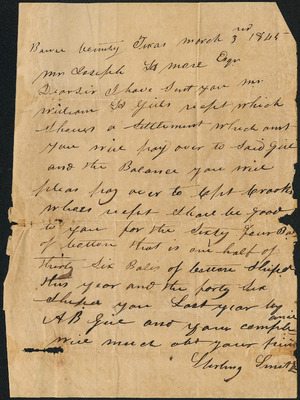 Bowie County Texas March 3rd 1845
Mr Joseph H More Esqr
Dear Sir I have Sent you Mr
William H Giees recpt which
Shows a Settlement which amt
you wiee pay over to Said Giee
and the Balance you wiee
pleas pay over to Capt Crooks
whoes recpt Shall be good
to you for the Sixty four Bales
of Cotton that is one half of
thirty Six Bales of Cotton Shiped
this year and the forty Six
Shiped you Last year by
A B Giee and your complyance
wiee much obt your friend
Sterling Smith